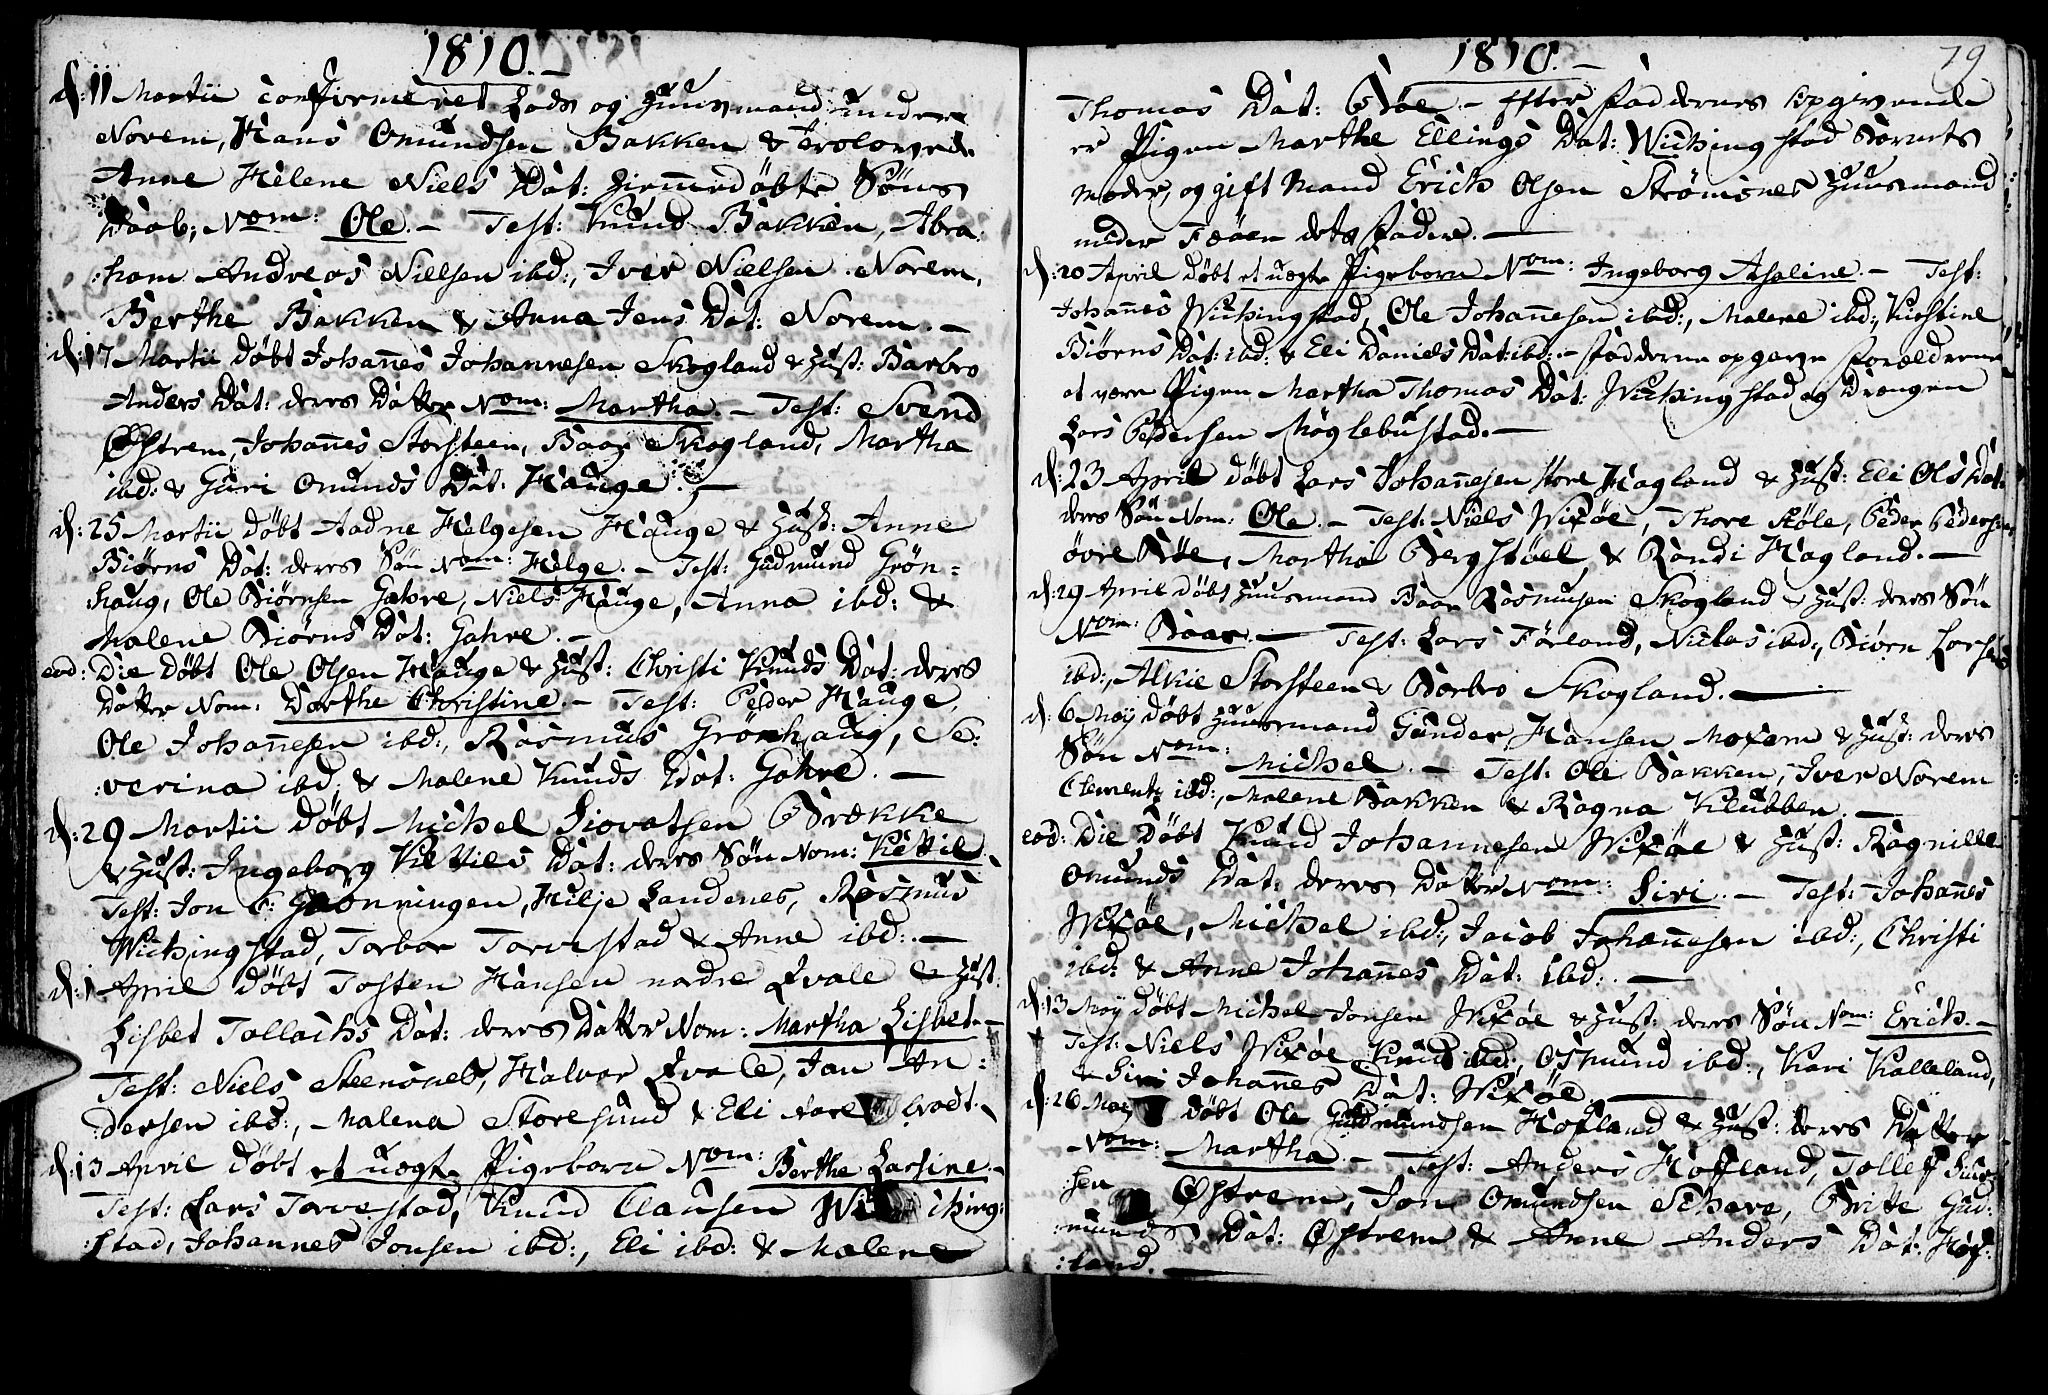 1810.-
d: 11 Martii confirmeret Lods og Huusmand under
Norem, Hans Omundsen Bakken & trolovede
Anne Helene Niels Dat: hiemmedöbte Söns
Daab, Nom: Ole.- Test: Knud Bakken, Abra:
:ham Andreas Nielsen ibd:, Iver Nielsen Norem,
Berthe Bakken & Anna Jens Dat: Norem.-
d: 17 Martii döbt Johannes Johannesen Skogland & Hust: Barbro
Anders Dat: deres Datter Nom: Martha.- Test: Svend
Østrem, Johannes Storsteen, Baar Skogland, Martha
ibd: & Guri Omunds Dat: Hauge.-
d: 25 Martii döbt Aadne Helgesen Hauge & Hust: Anne
Biörns Dat: deres Sön Nom: Helge.- Test: Gudmund Grön=
:haug, Ole Biörnsen Gahre, Niels Hauge, Anna ibd: &
Malene Biörns Dat: Gahre.-
eod: Die döbt Ole Olsen Hauge & Hust: Christi Knuds Dat: deres
Datter Nom: Dorthe Christine.- Test: Peder Hauge,
Ole Johannesen ibd:, Rasmus Grönhaug, Se:
:verina ibd: & Malene Knuds Dat: Gahre.-
d: 29 Martii döbt Michel Siovatsen Brekke
& Hust: Ingeborg Kittils Dat: deres Sön Nom: Kittil.
Test: Jon Grönningen, Hilje Sandenes, Rasmus
Wichingstad, Torbor Torvestad & Anne ibd:.-
d: 1 April döbt Tosten Hansen nedre Qvale & Hust:
Lisbet Tollachs Dat: deres Datter Nom: Martha Lisbet.-
Test: Niels Steensnes, Halvor Qvale, Jan An:
:dersen ibd:, Malena Storesund & Eli
d: 13 April döbt et uægte Pigebarn Nom: Berthe Larsine.-
Test: Lars Torvestad, Knud Clausen Wiching:
:stad, Johannes Jonsen ibd:, Eli ibd: & Malene
1810.-
79
Thomas Dat: Böe.- Efter Faddernes Opgivende
er Pigen Marthe Ellings Dat: Wichingstad Barnets
Moder, og gift Mand Erich Olsen Strömsnes Huusmand
under Fæöen dets Fader.-
d: 20 April döbt et uægte Pigebarn Nom: Ingeborg Asaline.- Test:
Johannes Wichingstad, Ole Johannesen ibd:, Malene ibd:, Kirstine
Biörns Dat: ibd: & Eli Daniels Dat: ibd:.- Fadderne opgave Forældrene
at være Pigen Martha Thomas Dat: Wichingstad og Drengen
Lars Pedersen Möglebustad.-
d: 23 April döbt Lars Johannesen store Hagland & Hust: Eli Ols Dat:
deres Sön Nom: Ole.- Test: Niels Wixöe, Thore Stöle, Peder Pedersen
övre Böe, Martha Bergstöel, & Randi Hagland.-
d: 29 April döbt Huusmand Baar Rasmusen Skogland & Hust: deres Sön
Nom: Baar.- Test: Lars Förland, Niclas ibd:, Biörn Larsen
ibd:, Alkie Storsteen & Barbro Skogland.-
d: 6 May döbt Huusmand Gunder Hansen Norem & Hust: deres
Sön Nom: Michel.- Test: Ole Bakken, Iver Norem
Clements ibd:, Malene Bakken & Ragna Klubben.-
eod: Die döbt Knud Johannesen Wixöe & Hust: Ragnille
Omunds Dat: deres Datter Nom: Siri.- Test: Johannes
Wixöe, Michel ibd:, Jacob Johannesen ibd:, Christi
ibd: & Anne Johannes Dat: ibd:.-
d: 13 May döbt Michel Jonsen Wixöe & Hust: deres Sön Nom: Erich.-
Test: Niels Wixöe, Knud ibd:, Osmund ibd:, Kari Kalleland,
& Siri Johannes Dat: Wixöe.-
d: 26 May döbt Ole Gudmundsen Hofland & Hust: deres Datter
Nom: Martha.- Test: Anders Hofland, Tollef
:sen Østrem, Jon Omundsen Schare, Britte Gud:
:munds Dat: Østrem & Anne Anders Dat: Hof:
:land.-